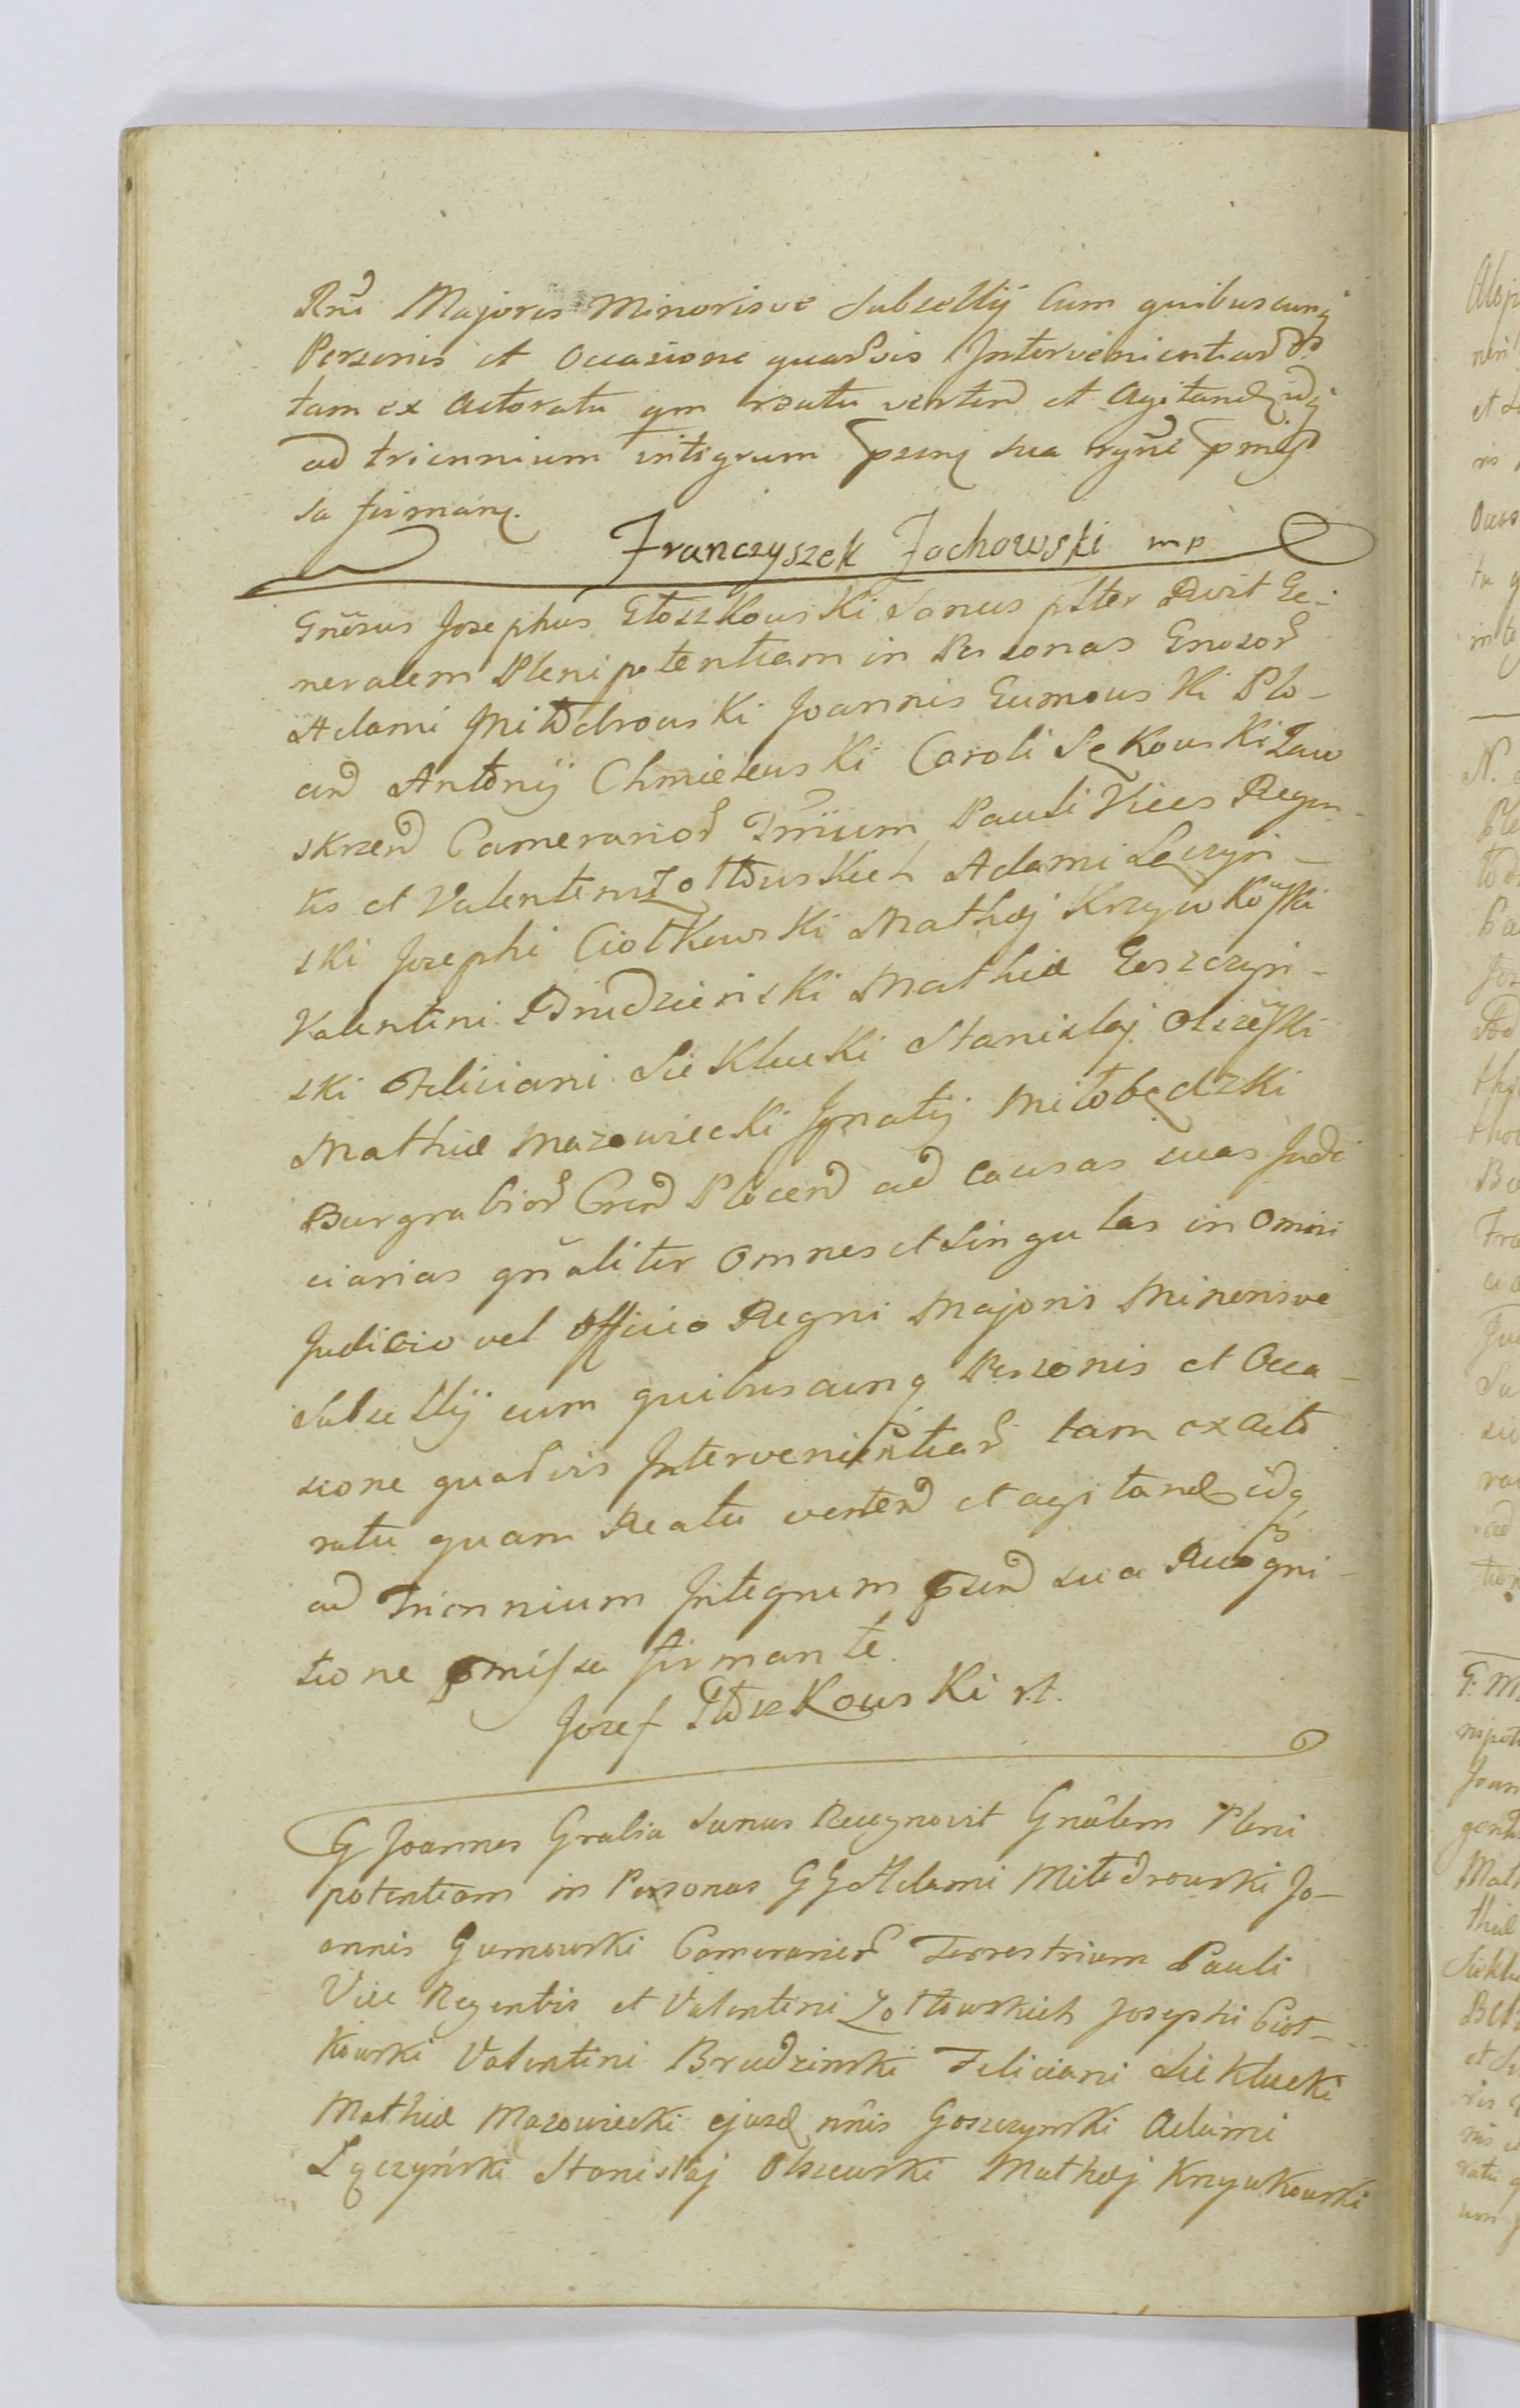 Rni Majoris Minorisve Subsellij Cum quibuscunq
Personis et Occasione quarvis Intervenientiar
tam ex Actoratu qm reatu verten et Agitand idq
ad triennium integrum psenq sua rgne pmis
sa firmanq.
Franczyszek Zochowski mp
Gnesus Josephus Głoszkowski Sanus ptter Rwit Ge-
neralem Plenipotentiam in Personas Gnosor
Adami Miłodrowski Joannis Gumowski Plo-
cen Antonij Chmielewski Caroli Sękowski Zaw
skrzen Camerarior Trrium Pauli Vices Regen-
tis et Valentini Zołtowskich Adami Łęczyn-
ski Josephi Ciołkowski Mathej Krzywkowski
Valentini Brudzienski Mathiæ Goszczyn-
ski Feliciani Sieklucki Stanislaj Olszewski
Mathiæ Mazowiecki Ignatij Miłobędzki
Burgrabior Cren Plocen ad causas suas Judi
ciarias gnaliter Omnes et Singulas in Omni
Judicio vel Officio Regni Majoris Minorisve
Subsellij cum quibuscunq Personis et Occa-
sione quarvis Intervenientiar tam ex Acto
ratu quam Reatu verten et agitand idq
ad Triennium Integrum psen sua Recogni-
tione pmissa firmante.
Jozef Głoszkowski rt.
G Joannes Gralia Sanus Recognovit Gnalem Pleni
potentiam in Personas GG Adami Miłodrowski Jo-
annis Gumowski Camerarior Terrestrium Pauli
Vice Regentis et Valentini Zołtowskich Josephi Cioł-
kowski Valentini Brudzinski Feliciani Sieklucki
Mathiæ Mazowiecki ejusd nnis Goszczynski Adami
Łęczyński Stanislaj Olszewski Mathej Krzywkowski